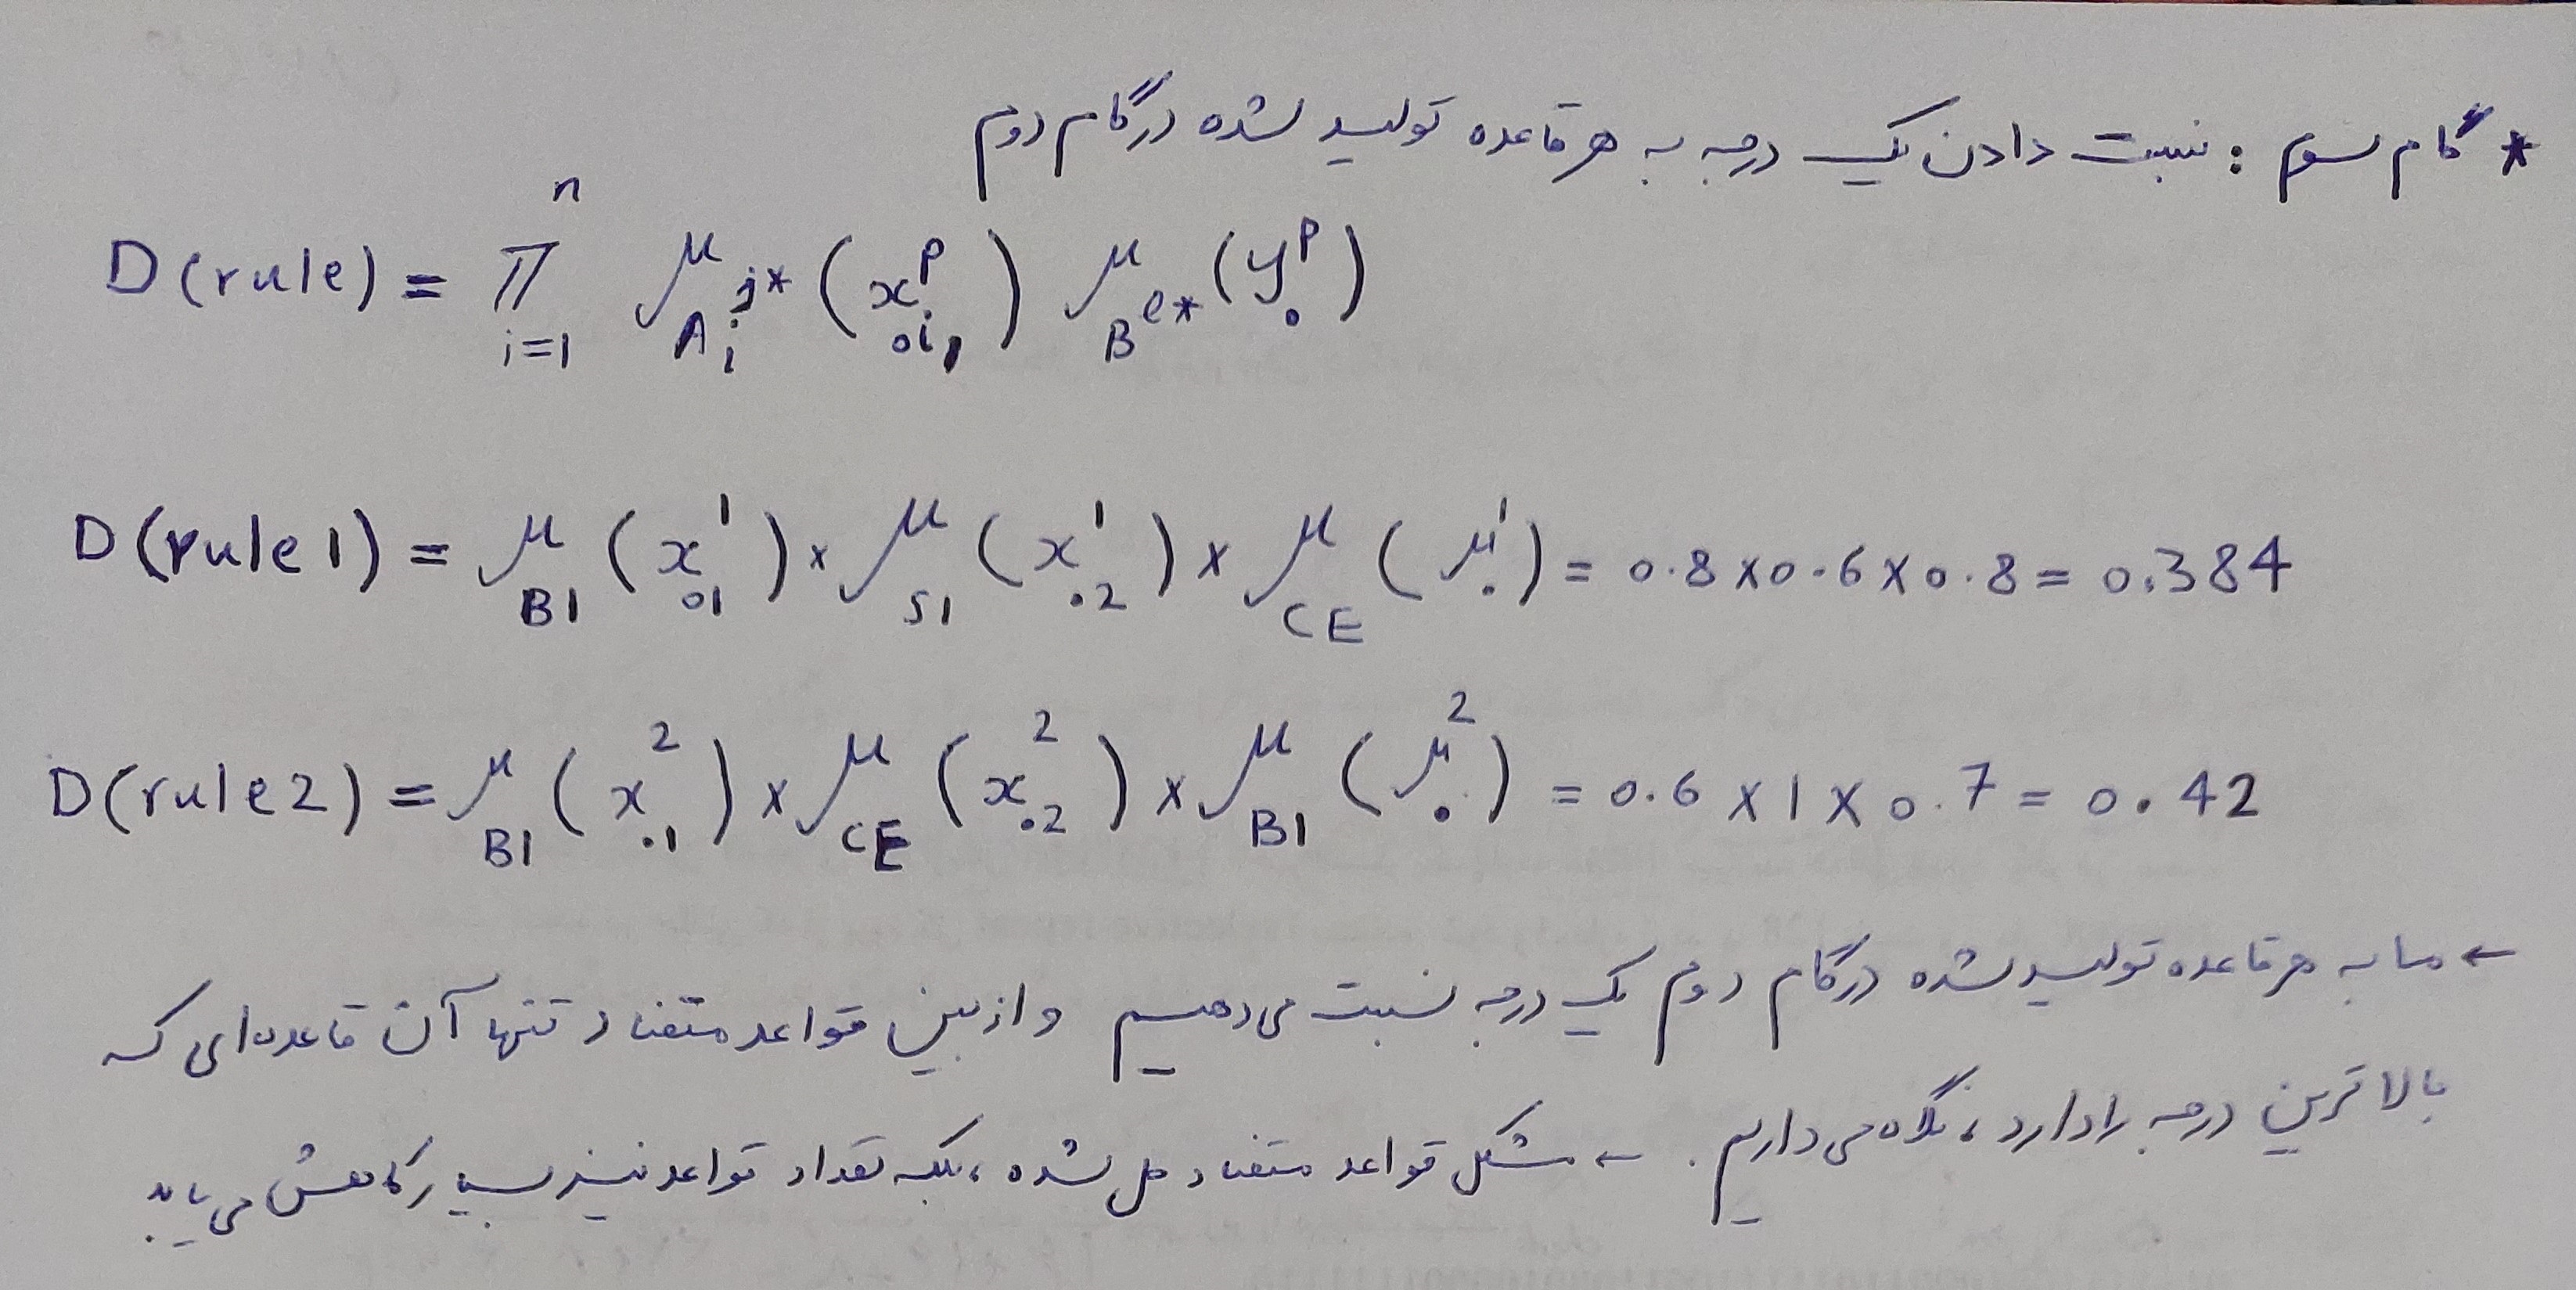 * گام سوم : نسبت دادن یک درجه به هر قاعده تولید شده در گام دوم
D(rule) = ∏_{i=1}^{n} μ_{A_i^{j*}} (x_{0i}^p) μ_{B^{l*}} (y_0^p)
D(rule1) = μ_{B1} (x_{01}^1) × μ_{S1} (x_{02}^1) × μ_{CE} (μ_0^1) = 0.8 × 0.6 × 0.8 = 0.384
D(rule2) = μ_{B1} (x_{01}^2) × μ_{CE} (x_{02}^2) × μ_{B1} (μ_0^2) = 0.6 × 1 × 0.7 = 0.42
← ما به هر قاعده تولید شده در گام دوم یک درجه نسبت می‌دهیم و از بین قواعد متضاد تنها آن قاعده‌ای که
بالاترین درجه را دارد، نگاه می‌داریم. ← مشکل قواعد متضاد حل شده، بلکه تعداد قواعد نیز بسیار کاهش می‌یابد.